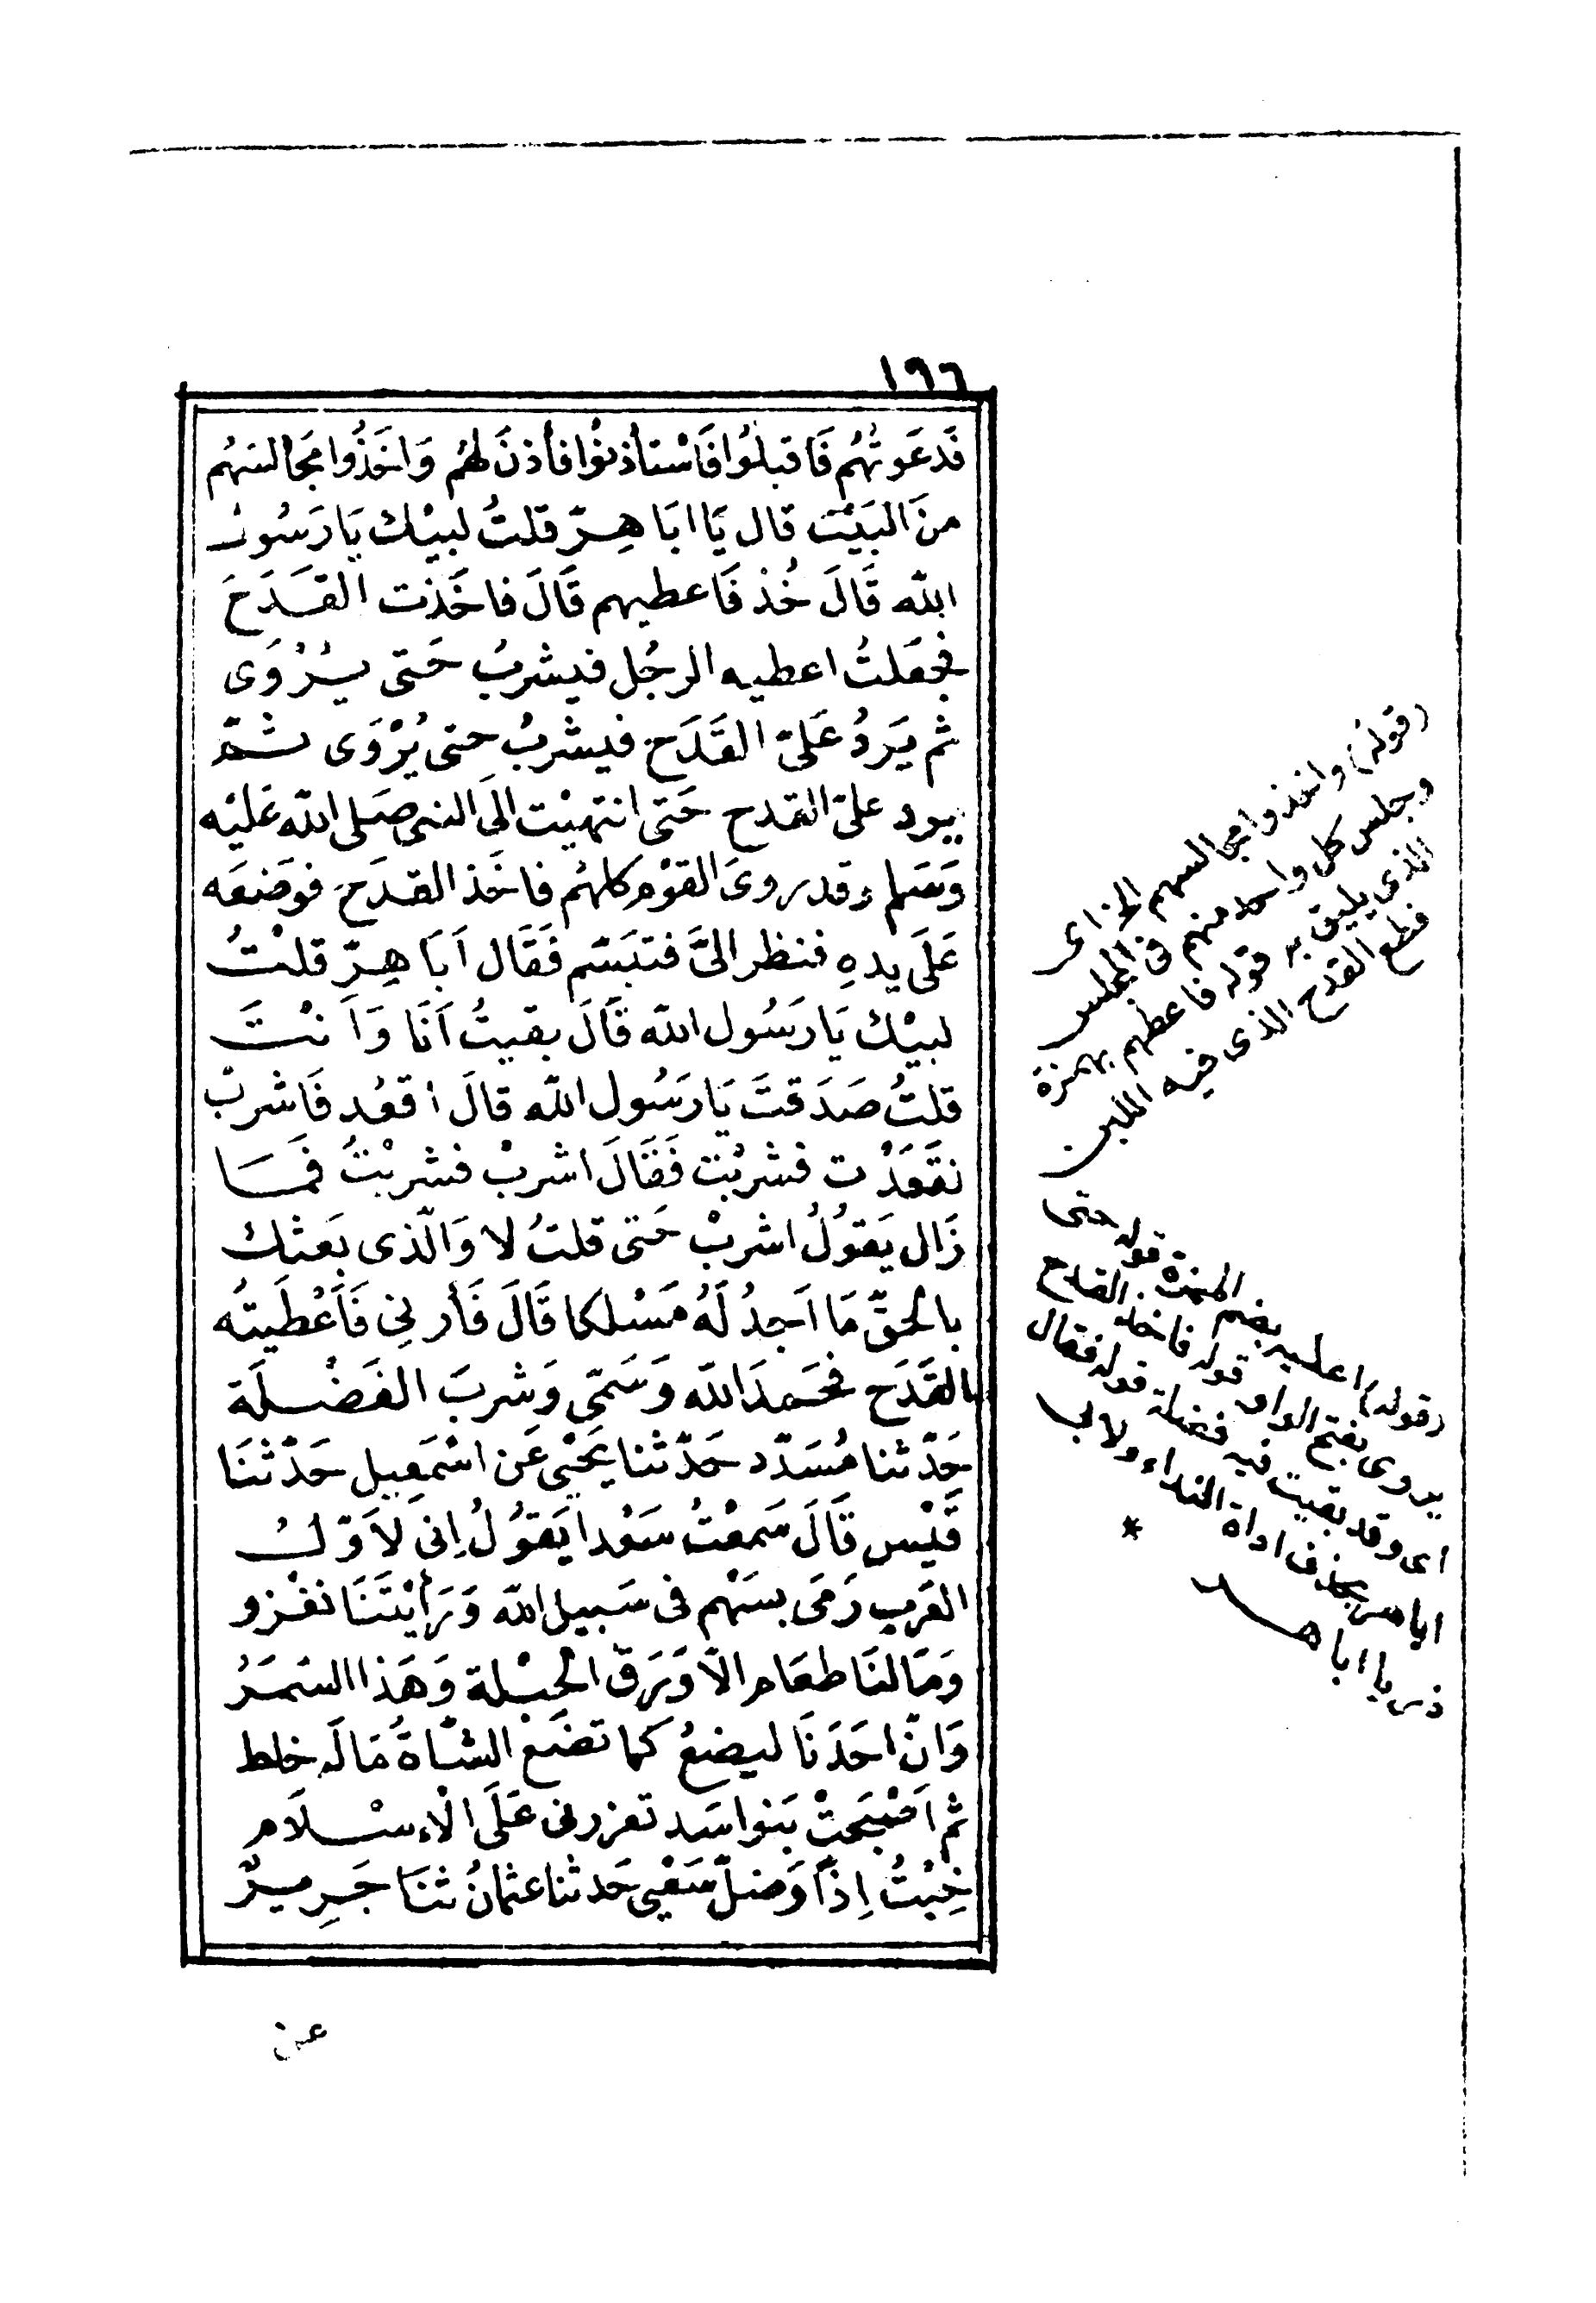 ١٩٦
فَدَعَوتُهُم فَاقبلُوا فَاسْتأذنوُا فأذنَ لهُم وَاخَذُوا مَجَالسَهُم
منَ البَيْت قال يَا ابَا هِرّ قلتُ لبيْك يَا رَسُول
الله قَالَ خُذ فَاعطيهم قَالَ فاخَذت القَدَحَ
فجعَلتُ اعطيه الرجُل فيشربُ حَتى يُرْوَى
ثم يَردُ عَلىّ القَدَح فيشربُ حتى يُرْوَى ثمّ
يرد علىّ القدح حَتى انتهيْت الىَ النبى صَلى الله عَليْه
وَسَلم وقد روىَ القوْم كلهُم فاخَذ القدَحَ فوضَعَه
عَلَى يدهِ فنظر الىَّ فتبَسّم فَقَال اَبَا هِرّ قلتُ
لبيْك يَا رَسُول الله قَالَ بقيتُ اَنَا وَاَنْتَ
قلتُ صَدَقتَ يَا رَسُول الله قالَ اقعُد فَاشربْ
فقَعَدْت فشربْت فَقَالَ اشربْ فشربْتُ فمَا
زَال يَقوُلُ اشربْ حَتى قلتُ لا وَالّذى بَعثك
بالحَقّ مَا اَجدُ لَهُ مَسْلكا قَالَ فَأرنِى فَاَعْطَيتُه
القَدَح فحَمدَ الله وَسَمّى وَشربَ الفَضْلَة
حَدّثنا مُسَدّد حَدّثنا يَحْيى عَن اسْمَعِيل حَدّثنَا
قَيْس قَالَ سَمعْتُ سَعْدا يَقوُلُ اِنى لاَوّلُ
العَرب رَمَى بسَهْم فى سَبيل الله وَرَأيْتَنَا نغْزو
وَمَا لنَا طعَام الاّ وَرَقَ الحُبْلة وَهَذا السَمَرُ
وَانّ احَدَنَا ليضعُ كَما تضَعُ الشّاةُ مَا لَه خلط
ثم اَصْبَحتْ بَنو اسَد تعزرنى عَلَى الاْءسْلَام
خِبْتُ اِذًا وَضلّ سَعْيى حَدثنا عثمانُ ثنَا جَرِيرٌ
عن
(قوله) واخذوا مجالسهم الخ اى
وجلس كل واحد منهم فى المجلس
الذى يليق به قوله فاعطهم بهمزة
قطع القدح الذى فيه اللبن
(قوله) اعطيه بضم الهمزة قوله حتى
يروى بفتح الواو قوله فاخذ القدح
اى وقد بقيت فيه فضلة قوله فقال
ابا هر بحذف اداة النداء ولابى
ذر يا ابا هر
*